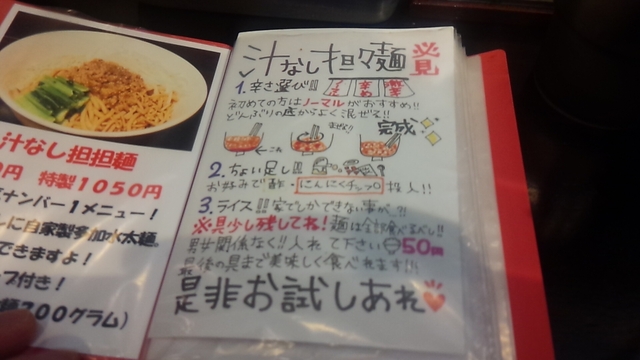 汁なし担担麺
0円 特製1050円
ナンバー1メニュー！
に自家製参加水太麺。
できますよ！
プ付き！
麺200グラム）
汁なし担々麺 必見
1. 辛さ選び!!
初めての方はノーマルがおすすめ!!
どんぶりの底からよく混ぜる!!
まぜる!! 完成
ここ
2. ちょい足し!!
お好みで酢・にんにくチップ 投入!!
3. ライス!! 家でしかできない事が…?!
※具少し残してね! 麺は全部食べるべし!!
男女関係なく!! 入れて下さい 50円
最後の具まで美味しく食べれます!!!
是非お試しあれ